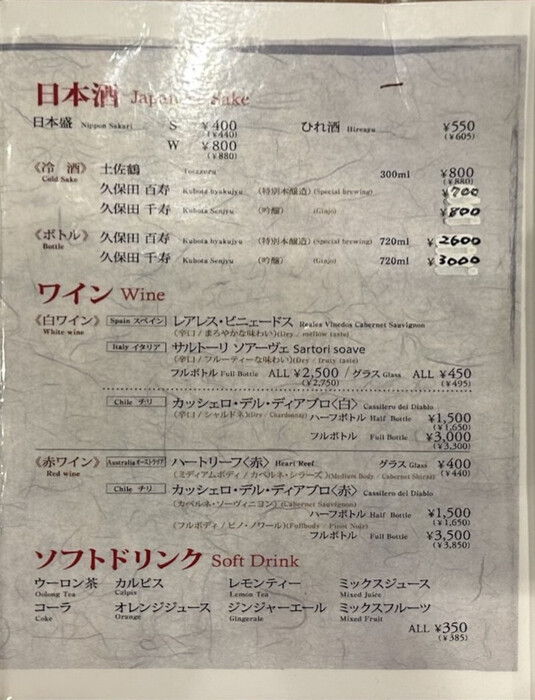 日本酒 Japanese Sake
日本盛 Nippon Sakari S ¥400 (¥440) ひれ酒 Hirezau ¥550 (¥605)
W ¥800 (¥880)
《冷 酒》 Cold Sake 土佐鶴 Tosazuru 300ml ¥800 (¥880)
久保田 百寿 Kubota hyakujyu (特別本醸造) (Special brewing) ¥700
久保田 千寿 Kubota Senjyu (吟醸) (Ginjo) ¥800
《ボトル》 Bottle 久保田 百寿 Kubota hyakujyu (特別本醸造) (Special brewing) 720ml ¥2600
久保田 千寿 Kubota Senjyu (吟醸) (Ginjo) 720ml ¥3000
ワイン Wine
《白ワイン》 White wine Spain スペイン レアレス・ビニェードス Reales Vinedos Cabernet Sauvignon
(辛口 / まろやかな味わい)(Dry / mellow taste)
Italy イタリア サルトーリ ソアーヴェ Sartori soave
(辛口 / フルーティーな味わい)(Dry / fruty taste)
フルボトル Full Bottle ALL ¥2,500 / グラス Glass ALL ¥450
(¥2,750) (¥495)
Chile チリ カッシェロ・デル・ディアブロ〈白〉 Cassilero del Diablo
(辛口 / シャルドネ)(Dry / Chardonnay) ハーフボトル Half Bottle ¥1,500
(¥1,650)
フルボトル Full Bottle ¥3,000
(¥3,300)
《赤ワイン》 Red wine Australia オーストラリア ハートリーフ〈赤〉 Heart Reef グラス Glass ¥400
(ミディアムボディ / カベルネ・シラーズ)(Medium Body / Cabernet Shiraz) (¥440)
Chile チリ カッシェロ・デル・ディアブロ〈赤〉 Cassilero del Diablo
(カベルネ・ソーヴィニヨン)(Cabernet Sauvignon)
ハーフボトル Half Bottle ¥1,500
(フルボディ / ピノ・ノワール)(Fullbody / Pinot Noir) (¥1,650)
フルボトル Full Bottle ¥3,500
(¥3,850)
ソフトドリンク Soft Drink
ウーロン茶 カルピス レモンティー ミックスジュース
Oolong Tea Calpis Lemon Tea Mixed Juice
コーラ オレンジジュース ジンジャーエール ミックスフルーツ
Coke Orange Gingerale Mixed Fruit
ALL ¥350
(¥385)